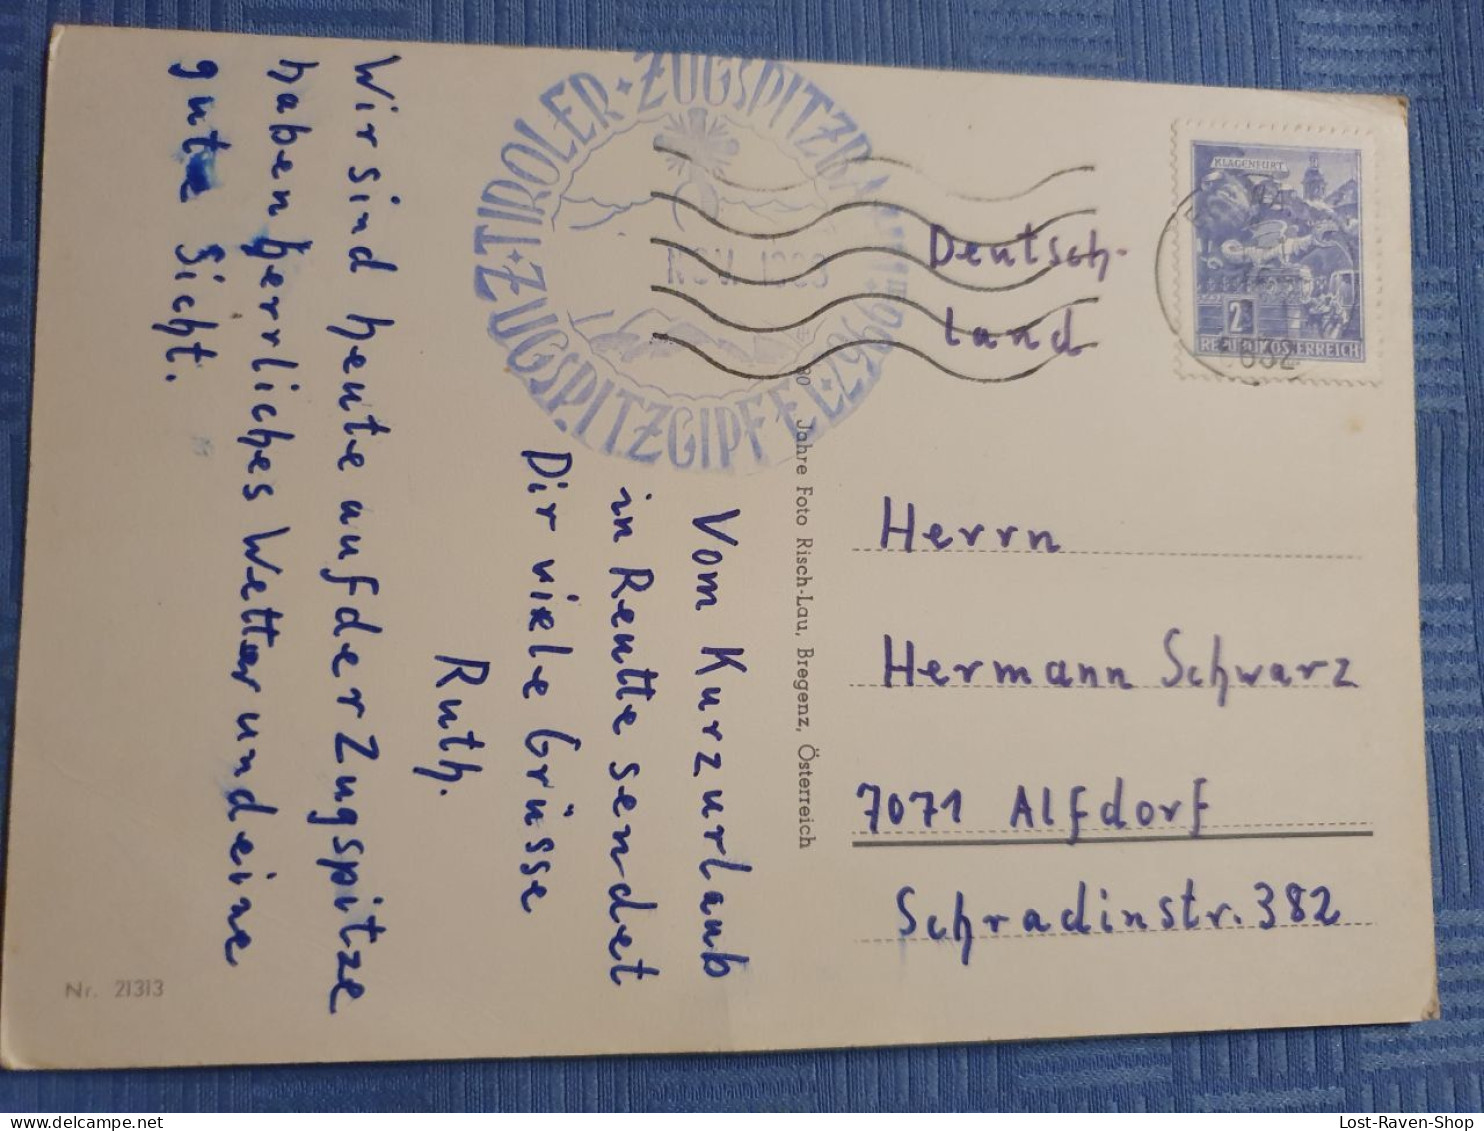 Vom Kurzurlaub
in Reutte sendet
Dir viele Grüsse
Ruth.
Wir sind heute auf der Zugspitze
haben herrliches Wetter und eine
gute Sicht.
TIROLER · ZUGSPITZBA
ZUGSPITZGIPFEL
NOV. 1983
Jahre Foto Risch-Lau, Bregenz, Österreich
Nr. 21313
KLAGENFURT
2
REPUBLIK ÖSTERREICH
Deutsch-
land
Herrn
Hermann Schwarz
7071 Alfdorf
Schradinstr. 382
Lost-Raven-Shop